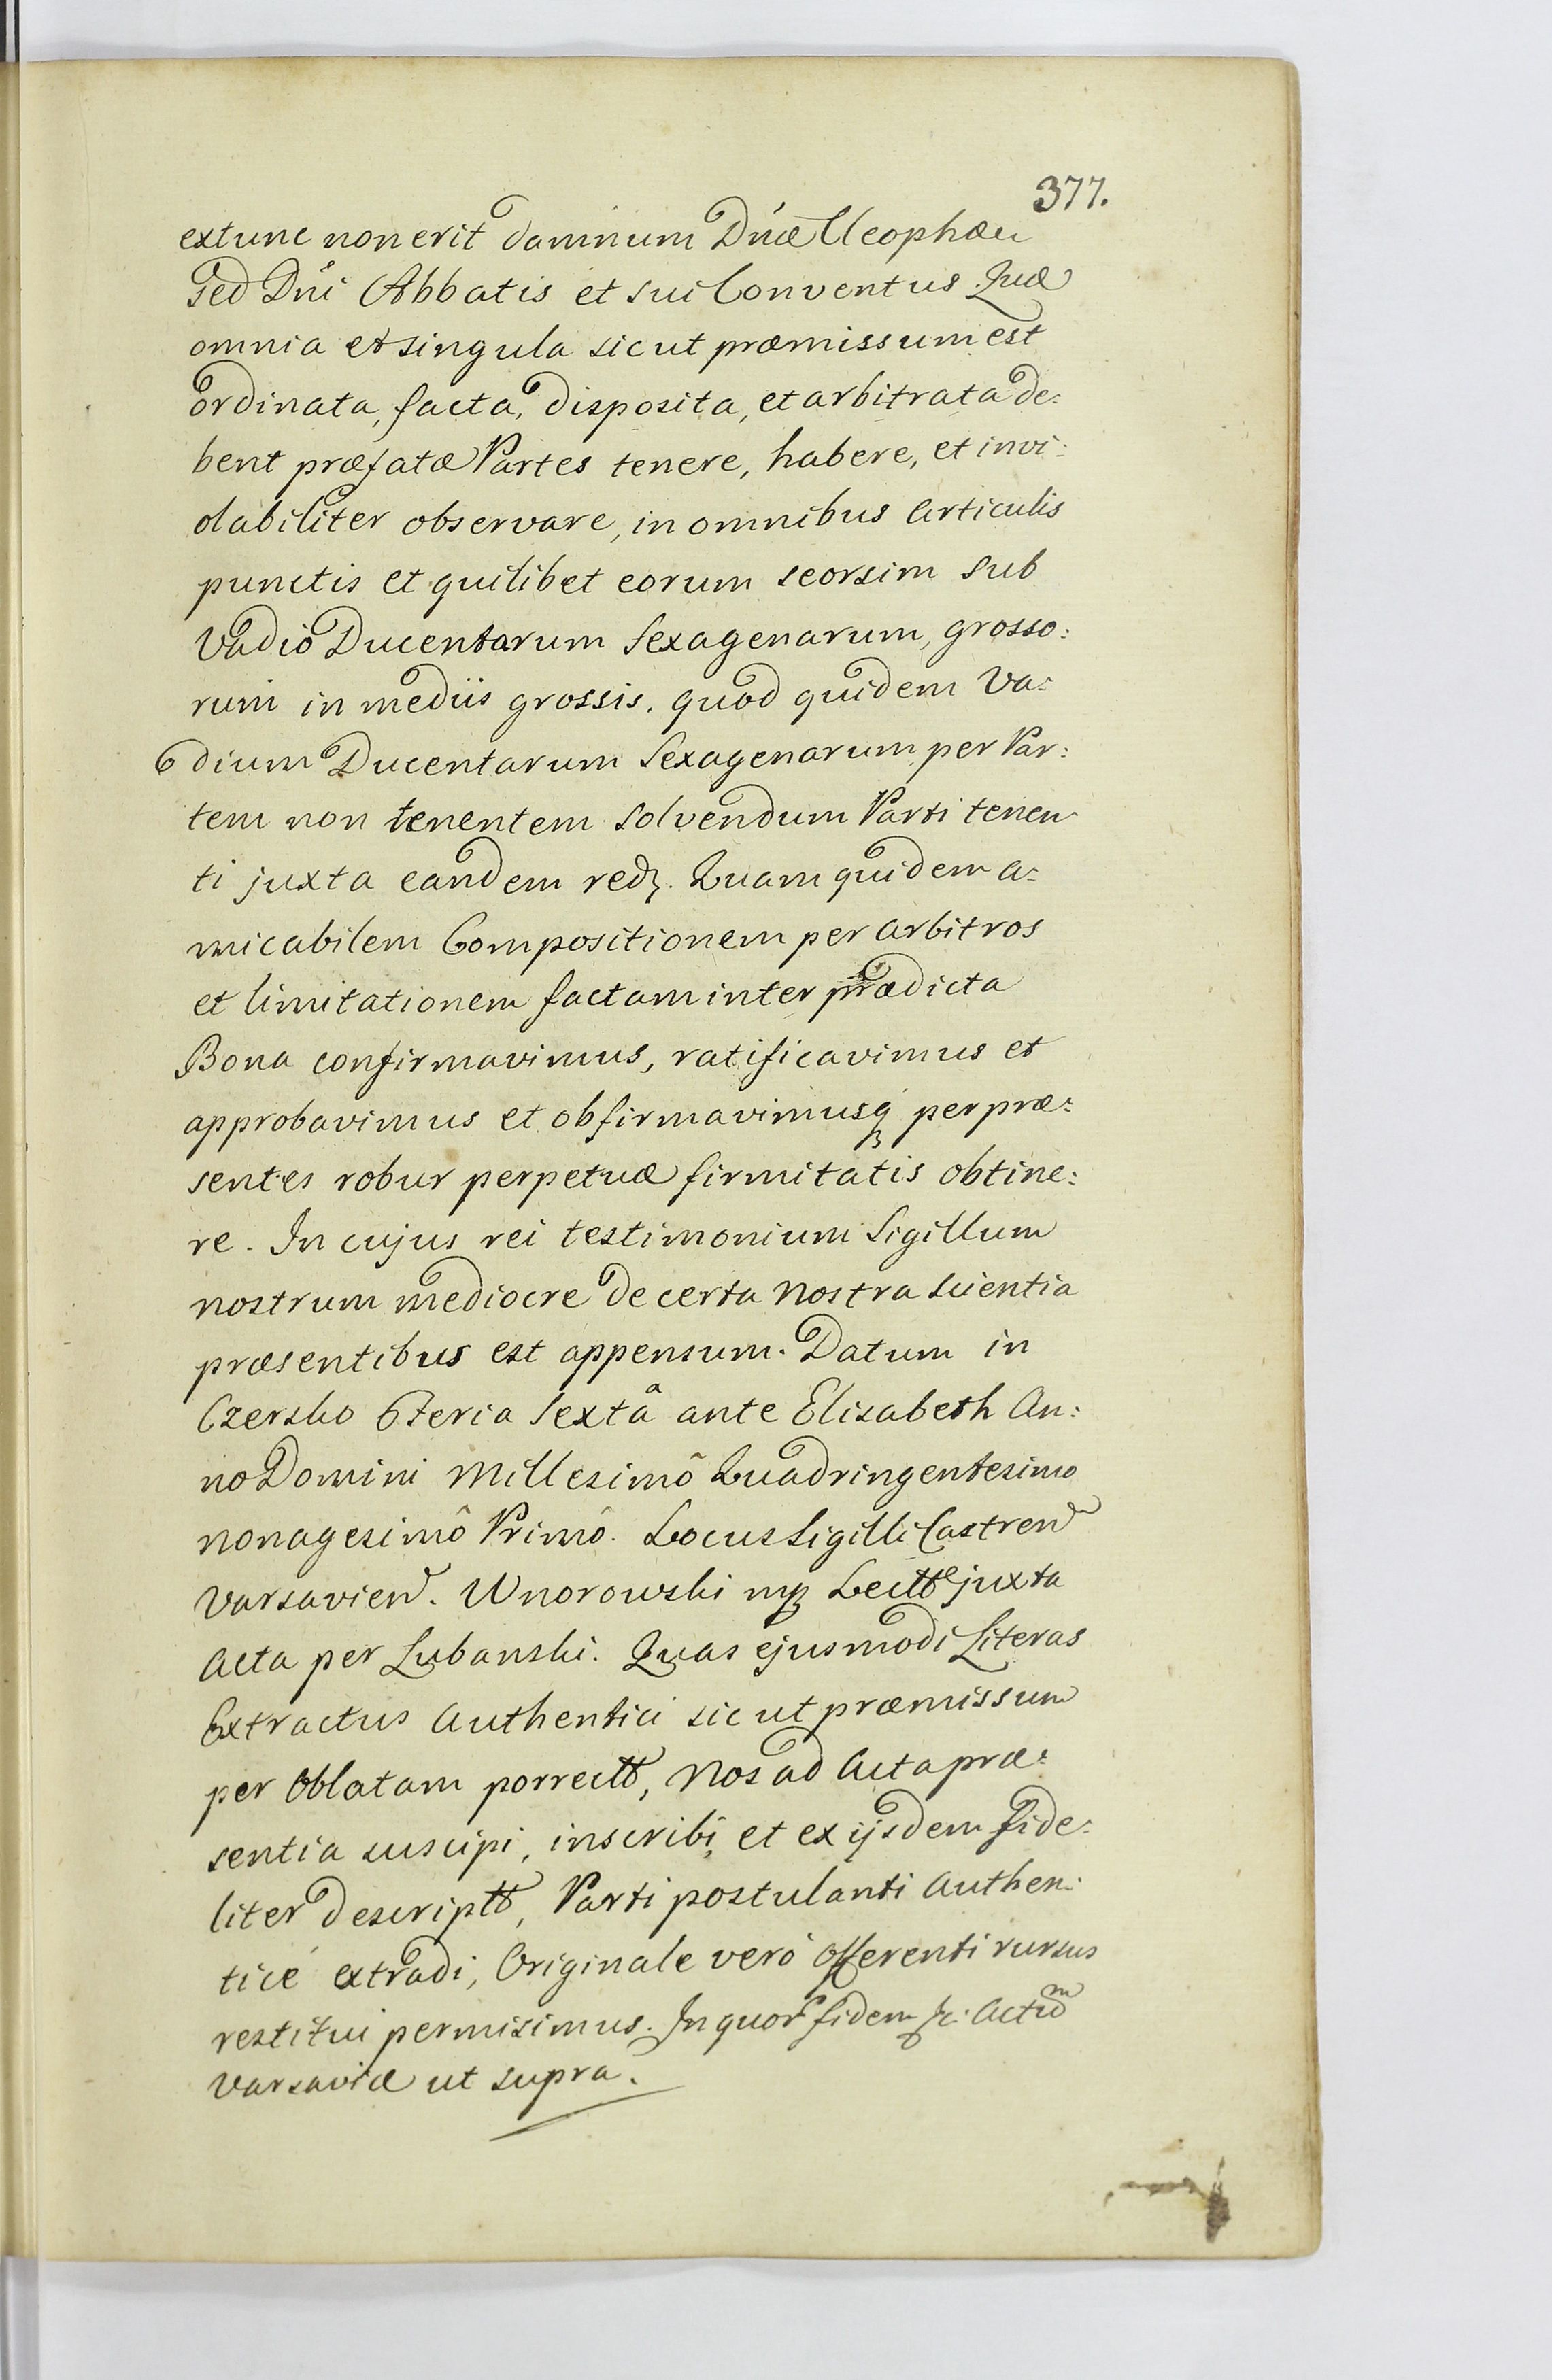 377.
extunc non erit damnum Dnæ Cleophæ
sed Dni Abbatis et sui Conventus. Quæ
omnia et singula sicut præmissum est
ordinata, facta, disposita, et arbitrata de:
bent præfatæ Partes tenere, habere, et invi:
olabiliter observare, in omnibus articulis
punctis et quilibet eorum seorsim sub
Vadio Ducentarum Sexagenarum, grosso:
rum in mediis grossis. quod quidem Va:
dium Ducentarum Sexagenarum per Par:
tem non tenentem solvendum Parti tenen
ti juxta eandem red. Quam quidem a:
micabilem Compositionem per arbitros
et limitationem factam inter prædicta
Bona confirmavimus, ratificavimus et
approbavimus et obfirmavimusq per præ:
sentes robur perpetuæ firmitatis obtine:
re. In cujus rei testimonium Sigillum
nostrum mediocre de certa nostra scientia
præsentibus est appensum. Datum in
Czersko Feria Sextâ ante Elisabeth An:
no Domini Millesimô Quadringentesimo
nonagesimô Primô. Locus Sigilli Castren
Varsavien. Wnorowski mp Lectt juxta
Acta per Lubanski. Quas ejusmodi Literas
Extractus Authentici sicut præmissum
per Oblatam porrectt, Nos ad Acta præ:
sentia suscipi, inscribi, et ex ijsdem fide:
liter descriptt, Parti postulanti authen:
ticé extradi, Originale veró Offerenti rursus
restitui permisimus. In quor fidem &c. Actum
Varsaviæ ut supra.